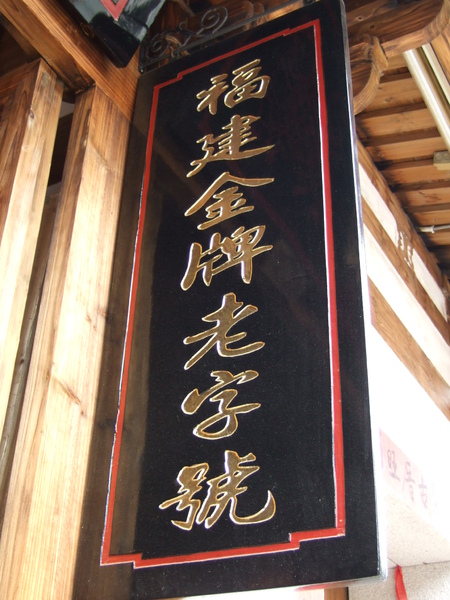 福建金牌老字號